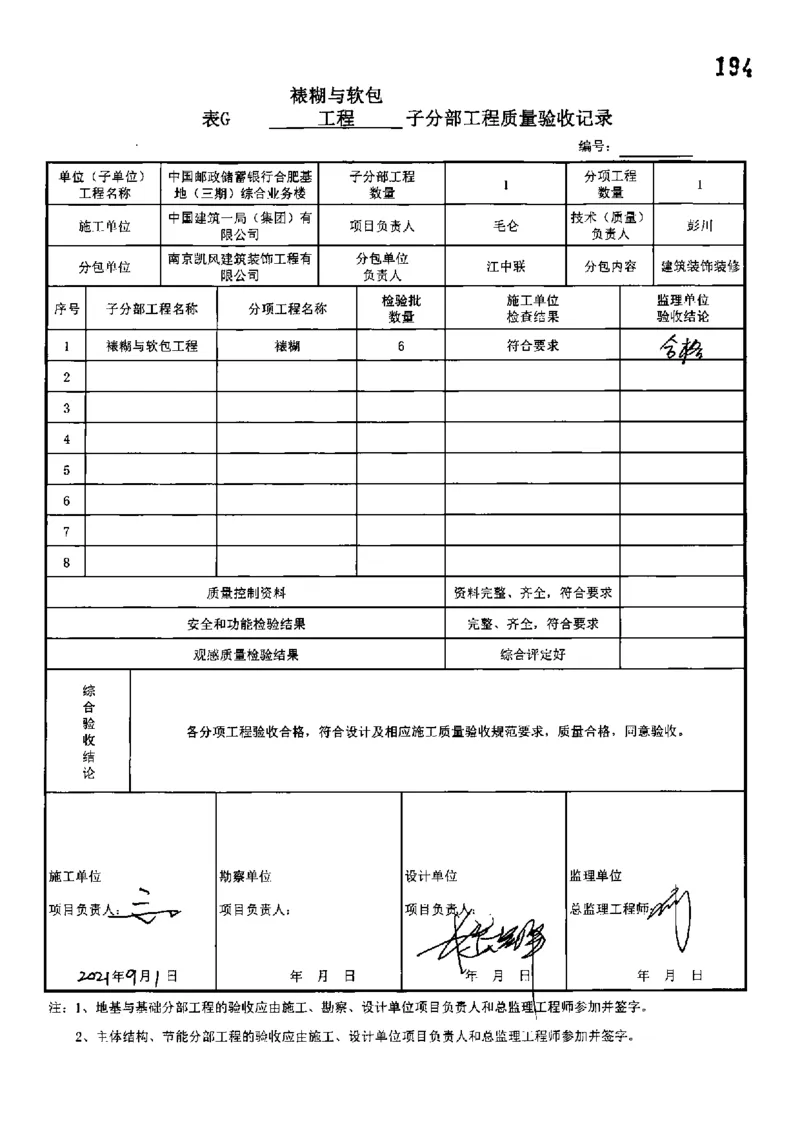 194
裱糊与软包
表G 工程 子分部工程质量验收记录
编号:
单位（子单位）工程名称 中国邮政储蓄银行合肥基地（三期）综合业务楼 子分部工程数量 1 分项工程数量 1
施工单位 中国建筑一局（集团）有限公司 项目负责人 毛仑 技术（质量）负责人 彭川
分包单位 南京凯风建筑装饰工程有限公司 分包单位负责人 江中联 分包内容 建筑装饰装修
序号 子分部工程名称 分项工程名称 检验批数量 施工单位检查结果 监理单位验收结论
1 裱糊与软包工程 裱糊 6 符合要求 合格
2
3
4
5
6
7
8
质量控制资料 资料完整、齐全，符合要求
安全和功能检验结果 完整、齐全，符合要求
观感质量检验结果 综合评定好
综合验收结论 各分项工程验收合格，符合设计及相应施工质量验收规范要求，质量合格，同意验收。
施工单位 勘察单位 设计单位 监理单位
项目负责人: 项目负责人: 项目负责人: 总监理工程师
2021年9月1日 年 月 日 年 月 日 年 月 日
注: 1、地基与基础分部工程的验收应由施工、勘察、设计单位项目负责人和总监理工程师参加并签字。
2、主体结构、节能分部工程的验收应由施工、设计单位项目负责人和总监理工程师参加并签字。